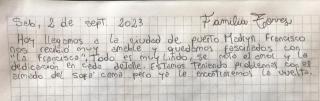 Sab, 2 de sept. 2023 Familia Torres
Hoy llegamos a la ciudad de puerto Madryn. Francisco
nos recibió muy amable y quedamos fascinados con
"La Francisca", Todo es muy Lindo, se nota el amor y la
dedicación en cada detalle. Estamos teniendo problemas con el
armado del sofa cama pero ya le encontraremos la vuelta.